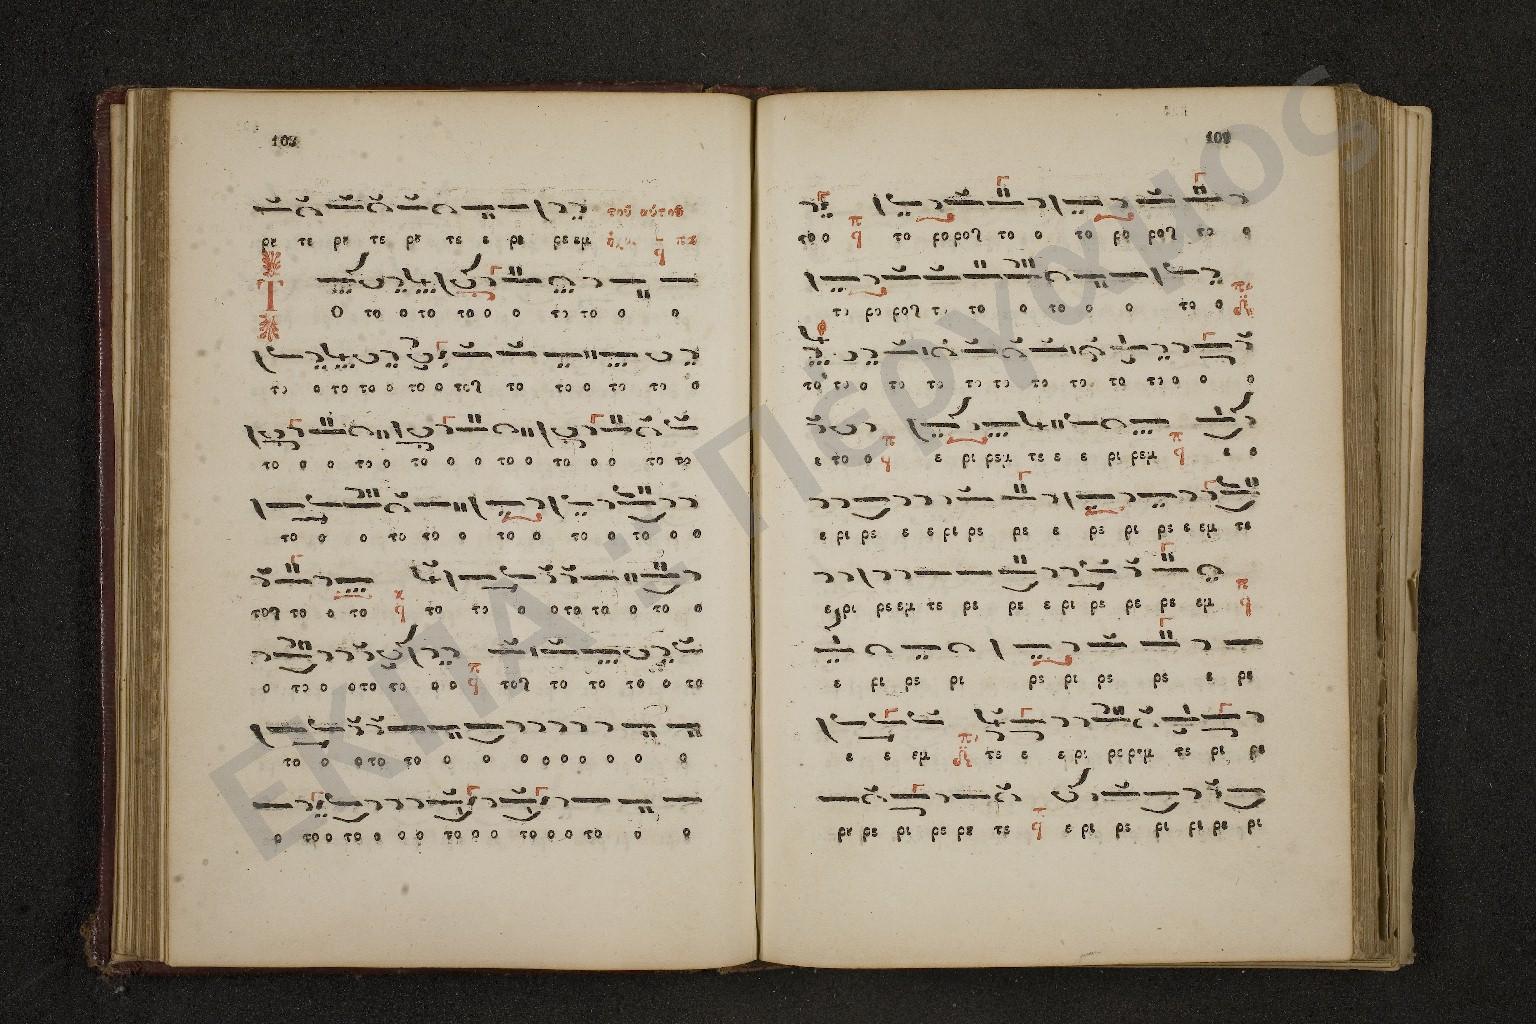 ρυ τε ρυ τε ρυ τε ε ρυ ρε εμ
τοῦ αὐτοῦ
Τ
Ο το ο το το ο ο το το ο ο
το ο το το ο το ο τοϛ το το ο το το ο
το ο ο το ο το ο ο ο το ο το ο ο το το
το ο ο το το ο το ο το ο το ο ο
τοϛ το ο το το το ο ο το το ο το ο
ο το ο ο το το ο ο τοϛ το το το ο το
το ο ο το το ο ο ο ο ο ο ο ο ο
ο το ο ο το ο ο ο το ο ο το ο ο το ο ο
109
το ο το ρο ροϛ το ο το ρο ροϛ το ο
το ρο ροϛ το το ο το ο ο το ο
το το ο το το το το το το το το ο ο ο
ε το ο ε ρι ρεμ τε ε ε ρι ρεμ ε ε
ε ρι ρε ε ε ρι ρε ρε ε ρε ρι ρε ε εμ τε
ε ρι ρε εμ τε ρε ρε ε ρι ρε ρε ρε εμ
ε ρι ρε ρι ρε ρι ρε ρε ε ρε
ε ε εμ τε ε ε ρι ρε ρεμ τε ρι ρε
ρε ρε ρι ρε ρε τε ε ρι ρε ρι ρι ρε ρι
ΕΚΠΑ :: Πέργαμος